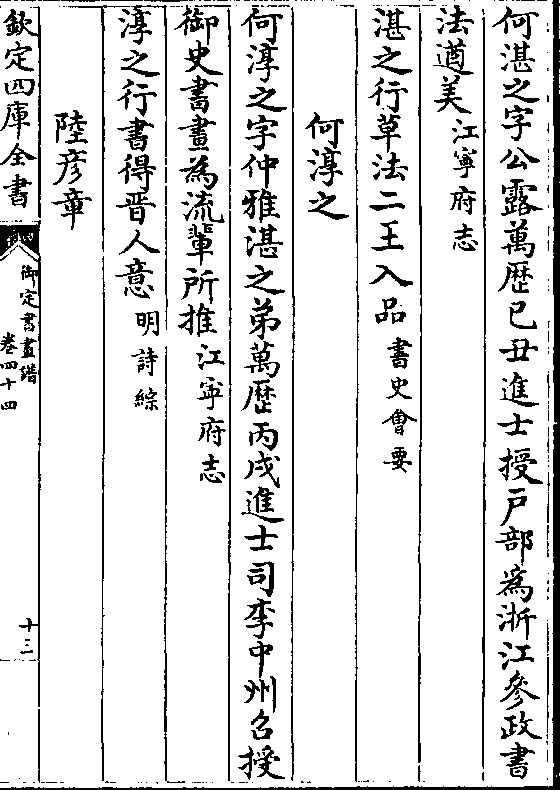 何湛之字公露萬歴已丑進士授戸部為浙江參政書
法遒美江寧府志
湛之行草法二王入品書史會要
何淳之
何淳之字仲雅湛之弟萬歴丙戌進士司李中州召授
御史書畫為流輩所推江寧府志
淳之行書得晋人意明詩綜
陸彦章
欽定四庫全書
御定書畫譜
卷四十四
十三